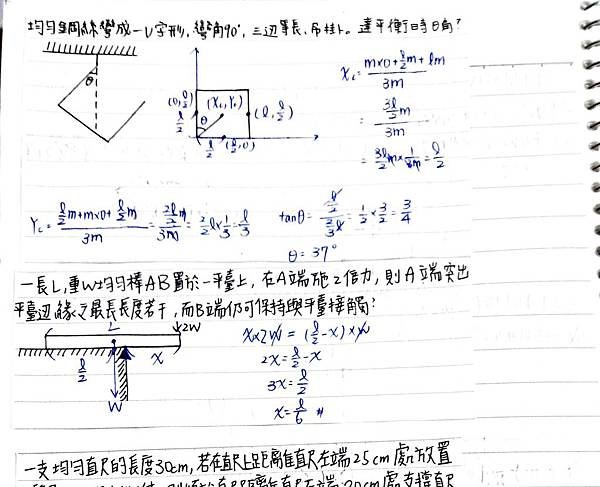 均勻鋼線彎成一U字形, 彎角90°, 三边等長, 吊挂上。達平衡時θ角?
θ
(0, ℓ/2)
ℓ/2
(Xc, Yc)
(ℓ, ℓ/2)
θ
ℓ/2
(ℓ/2, 0)
Xc = (m×0 + ℓ/2 m + ℓm) / 3m
= (3ℓ/2 m) / 3m
= 3ℓm/2 × 1/3m = ℓ/2
Yc = (ℓ/2 m + m×0 + ℓ/2 m) / 3m = (2ℓ/2 m) / 3m = 2/2 ℓ × 1/3 = ℓ/3
tanθ = (ℓ/2) / (2/3 ℓ) = 1/2 × 3/2 = 3/4
θ = 37°
一長L, 重W均勻棒AB置於一平臺上, 在A端施2倍力, 則A端突出
平臺边緣之最長長度若干, 而B端仍可保持與平臺接觸?
L
↓2W
ℓ/2
X
W
X×2W = (ℓ/2 - X)×W
2X = ℓ/2 - X
3X = ℓ/2
X = ℓ/6 #
一支均勻直尺的長度30cm, 若在直尺上距離直尺左端25cm處放置
20cm處支撐直尺